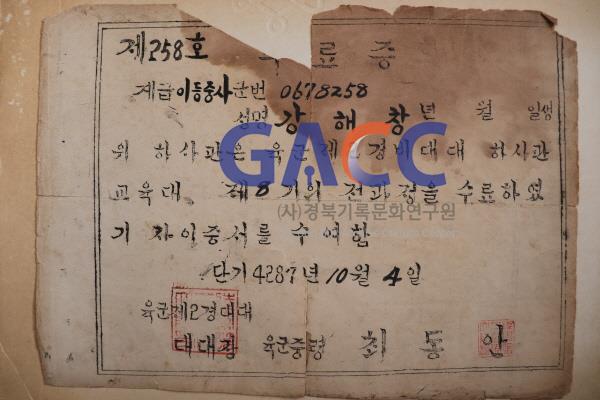 제258호
수 료 증
계급 이등중사 군번 0678258
성명 강 해 창 년 월 일생
위 하사관은 육군제2경비대대 하사관
교육대 제8기의 전과정을 수료하였
기 자이증서를 수여함
단기4287년 10월 4일
육군제2경대대
대대장 육군중령 최 동 안
GACC
(사)경북기록문화연구원